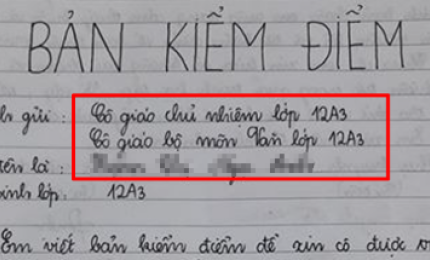 BẢN KIỂM ĐIỂM
gửi : Cô giáo chủ nhiệm lớp 12A3
Cô giáo bộ môn Văn lớp 12A3
tên là :
sinh lớp: 12A3
Em viết bản kiểm điểm để xin cô được